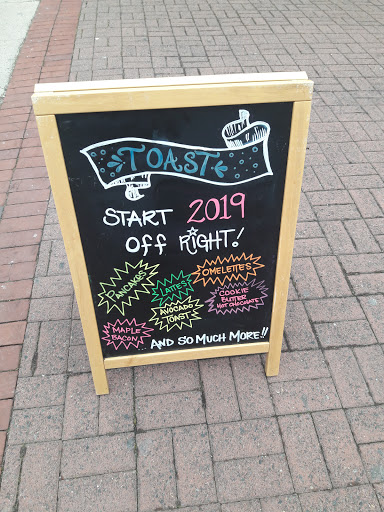 TOAST
START 2019
OFF RIGHT!
PANCAKES
LATTES
OMELETTES
AVOCADO
TOAST
COOKIE
BUTTER
HOT CHOCOLATE
MAPLE
BACON
... AND SO MUCH MORE!!